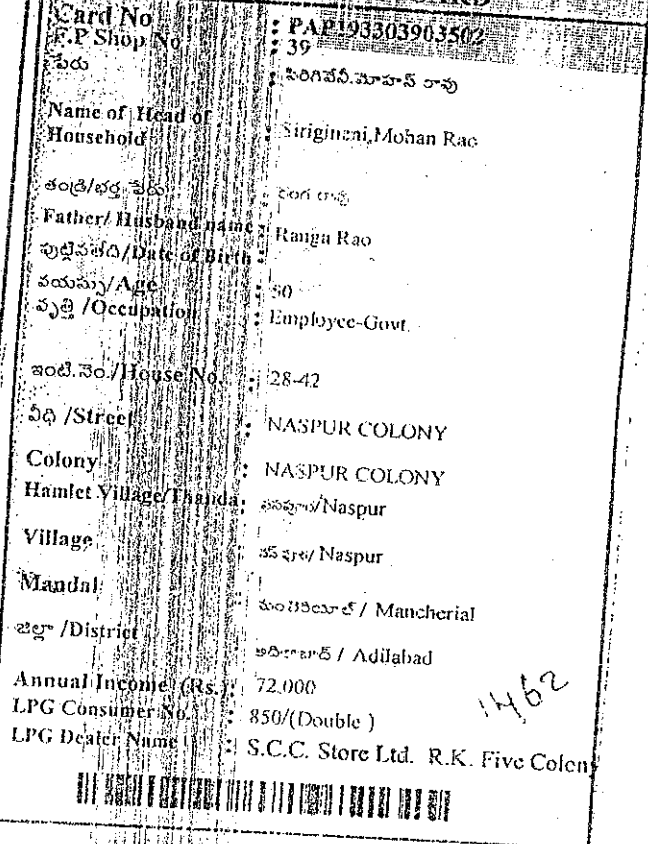 Card No : PAP193303903502
F.P Shop No : 39
పేరు : సిరిగినేని.మోహన్ రావు
Name of Head of
Household : Sirigineni,Mohan Rao
తండ్రి/భర్త పేరు : రంగ రావు
Father/ Husband name : Ranga Rao
పుట్టినతేది/Date of Birth :
వయస్సు/Age : 50
వృత్తి /Occupation : Employee-Govt.
ఇంటి.నెం./House No. : 28-42
వీధి /Street : NASPUR COLONY
Colony : NASPUR COLONY
Hamlet Village/Thanda: /Naspur
Village : / Naspur
Mandal : / Mancherial
జిల్లా /District : / Adilabad
Annual Income (Rs.): 72,000
LPG Consumer No. : 850/(Double )
LPG Dealer Name : S.C.C. Store Ltd. R.K. Five Colony
1462